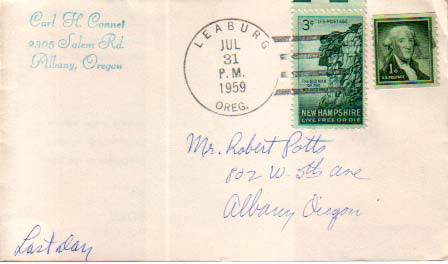 Carl H. Connet
2305 Salem Rd.
Albany, Oregon
LEABURG
JUL
31
P.M.
1959
OREG.
3¢ U.S. POSTAGE
THE OLD MAN
OF THE
MOUNTAINS
NEW HAMPSHIRE
LIVE FREE OR DIE
1¢
U.S. POSTAGE
Mr. Robert Potts
802 W. 5th ave
Albany Oregon
Last day